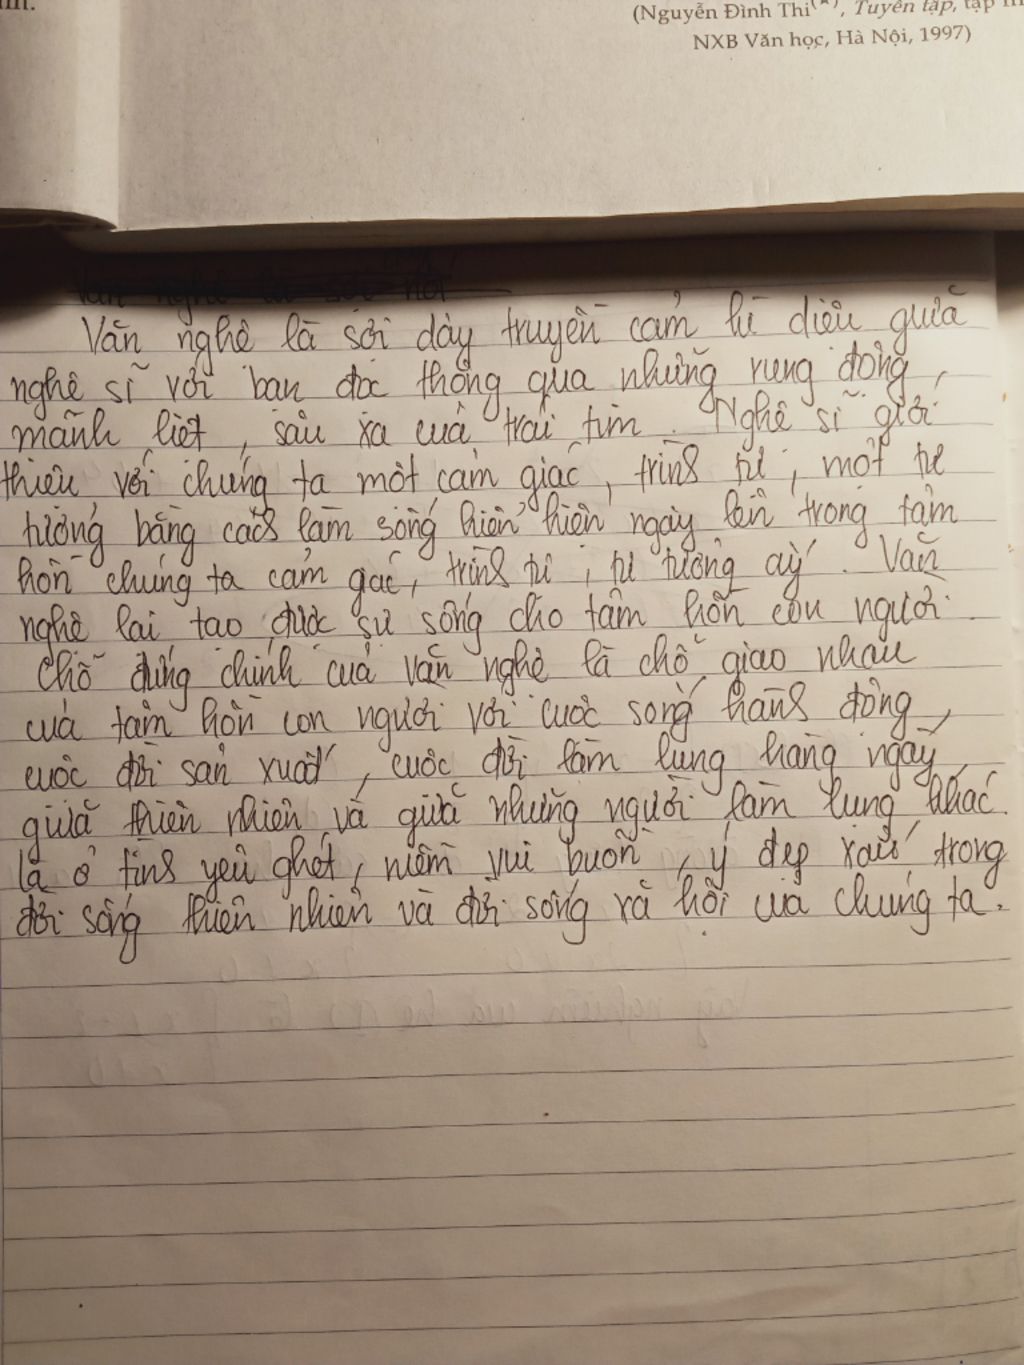 (Nguyễn Đình Thi(*), Tuyển tập, tập III
NXB Văn học, Hà Nội, 1997)
Văn nghệ là sởi
Văn nghệ là sởi dây truyền cảm kì diệu giưã
nghệ sĩ với bạn đọc thông qua những rung động,
mãnh liệt, sâu xa cuả trái tim. Nghệ sĩ giới
thiêu với chúng ta một cảm giác, tình tự, một tư
tưởng bằng cách làm sống hiển hiện ngay lên trong tâm
hồn chúng ta cảm gác, tình tự, tư tưởng ấy. Văn
nghệ lại tạo được sự sống cho tâm hồn con người.
Chỗ đứng chính cuả văn nghệ là chỗ giao nhau
cuả tâm hồn con người với cuộc sống hành động,
cuộc đời sản xuất, cuộc đời làm lụng hàng ngày,
giưã thiên nhiên và giưã những người làm lụng khác.
là ở tình yêu ghét, niềm vui buồn, ý đẹp xấu trong
đời sống thiên nhiên và đời sống xã hội cuả chúng ta.